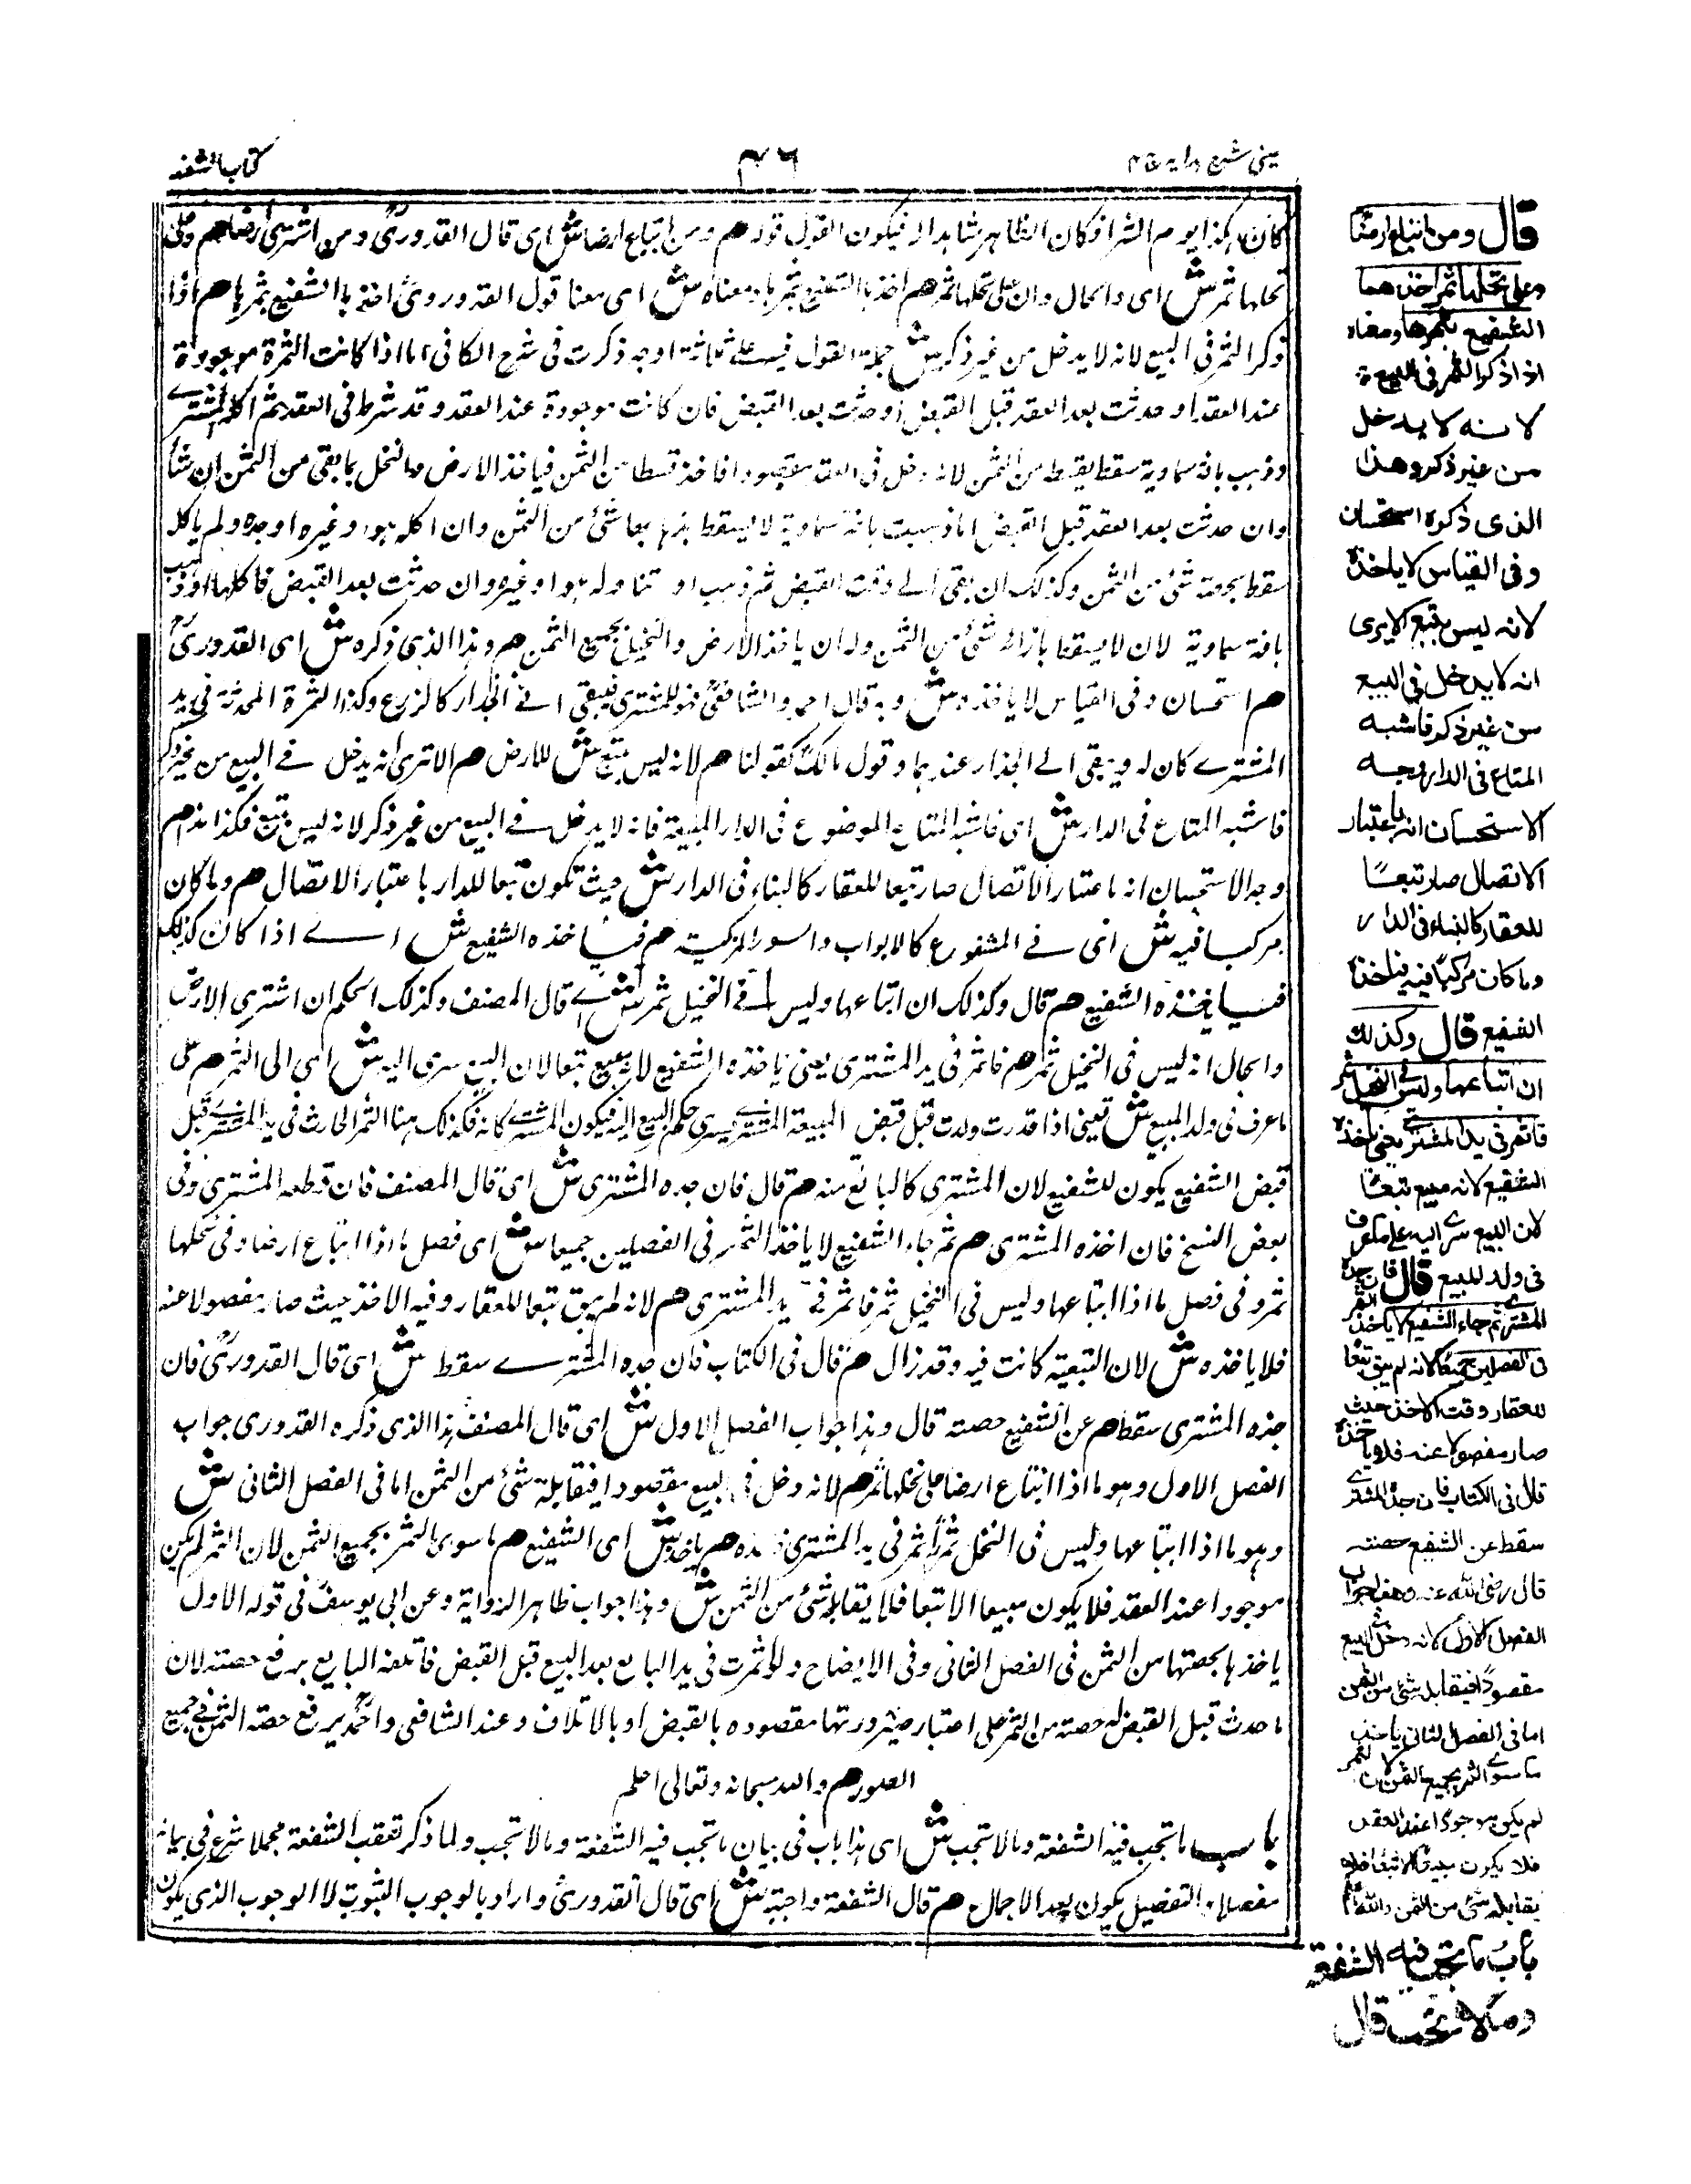 عینی شرح هدایه ج ۴
۴۶
کتاب الشفعه
کان هکذا یوم الشراء فکان الظاهر شاهدا له فیکون القول قوله هم ومن ابتاع ارضا ش ای قال القدوری ومن اشتری ارضا هم وعلی
نخلها ثمر ش ای والحال وان علی نخلها ثمر هم اخذها الشفیع بثمرها ومعناه ش ای معنا قول القدوروی اخذها الشفیع بثمرها هم اذا
ذکر الثمر فی البیع لانه لا یدخل من غیر ذکر ش جملة القول فیه علی ثلاثة اوجه ذکرت فی شرح الکافی اما اذا کانت الثمرة موجودة
عند العقد او حدثت بعد العقد قبل القبض او حدثت بعد القبض فان کانت موجودة عند العقد وقد شرط فی العقد ثم اکله المشتری
وذهب بافة سماویة سقط بقسطه من الثمن لانه دخل فی العقد مقصودا فاخذ قسطا من الثمن فیاخذ الارض والنخل بما بقی من الثمن ان شأ
وان حدثت بعد العقد قبل القبض اما ذهبت بافة سماویة لا یسقط بذهابها شئ من الثمن وان اکله هو او غیره اوجده ولم یاکل
سقط بحصته شئ من الثمن وکذلک ان بقی الی وقت القبض ثم ذهب او تناوله هو او غیره وان حدثت بعد القبض فاکلها او ذهب
بافة سماویة لان لا یسقط بازائه شئ من الثمن وله ان یاخذ الارض والنخیل بجمیع الثمن هم وهذا الذی ذکره ش ای القدوری
هم استحسان وفی القیاس لا یاخذه ش وبه قال احمد والشافعی فهو للمشتری فیبقی الی الجذار کالزرع وکذا الثمرة المحدثة فی ید
المشتری کان له ویبقی الی الجذار عندهما وقول مالک کقولنا هم لانه لیس بتبع ش للارض هم الا تری انه یدخل فی البیع من غیر ذکر
فاشبه المتاع فی الدار ش ای فاشبه المتاع الموضوع فی الدار المبیعة فانه لا یدخل فی البیع من غیر ذکر لانه لیس بتبع فکذا هذا هم
وجه الاستحسان انه باعتبار الاتصال صار تبعا للعقار کالبناء فی الدار ش حیث تکون تبعا للدار باعتبار الاتصال هم وما کان
مرکبا فیه ش ای فی المشفوع کالابواب والسور المرکبة هم فیاخذه الشفیع ش ای اذا کان کذلک
فیاخذه الشفیع هم قال وکذلک ان ابتاعها ولیس فی النخیل ثمر ش ای قال المصنف وکذلک الحکم ان اشتری الارض
والحال انه لیس فی النخیل ثمر هم فاثمر فی ید المشتری یعنی یاخذه الشفیع لانه مبیع تبعا لان البیع سری الیه ش ای الی الثمر هم علی
ما عرف فی ولد المبیع ش یعنی اذا ولدت قبل قبض المبیعة المشتری یسری حکم البیع الیه فیکون المشتری کانه فکذلک هنا الثمر الحادث فی ید المشتری قبل
قبض الشفیع یکون للشفیع لان المشتری کالبائع منه هم قال فان جده المشتری ش ای قال المصنف فان قطعه المشتری وفی
بعض النسخ فان اخذه المشتری هم ثم جاء الشفیع لا یاخذ الثمر فی الفصلین جمیعا ش ای فصل ما اذا ابتاع ارضا وفی نخلها
ثمر وفی فصل ما اذا ابتاعها ولیس فی النخیل ثمر فاثمر فی ید المشتری هم لانه لم یبق تبعا للعقار وقت الاخذ حیث صار مفصولا عنه
فلا یاخذه ش لان التبعیة کانت فیه وقد زال هم قال فی الکتاب فان جده المشتری سقط ش ای قال القدوری فان
جذه المشتری سقط هم عن الشفیع حصته قال وهذا جواب الفصل الاول ش ای قال المصنف هذا الذی ذکره القدوری جواب
الفصل الاول وهو ما اذا ابتاع ارضا علی نخلها ثمر هم لانه دخل فی البیع مقصودا فیقابله شئ من الثمن اما فی الفصل الثانی ش
وهو ما اذا ابتاعها ولیس فی النخل ثمر فاثمر فی ید المشتری هم یاخذ ش ای الشفیع هم ما سوی الثمر بجمیع الثمن لان الثمر لم یکن
موجودا عند العقد فلا یکون مبیعا الا تبعا فلا یقابله شئ من الثمن ش وهذا جواب ظاهر الروایة وعن ابی یوسف فی قوله الاول
یاخذها بحصتها من الثمن فی الفصل الثانی وفی الایضاح ولو اثمرت فی ید البایع بعد البیع قبل القبض فاتلفه البایع یرفع حصته لان
ما حدث قبل القبض له حصته من الثمر علی اعتبار صیرورتها مقصوده بالقبض او بالاتلاف وعند الشافعی واحمد یرفع حصه الثمن فی جمیع
الصور هم والله سبحانه وتعالی اعلم
باب ما تجب فیه الشفعة وما لا تجب ش ای هذا باب فی بیان ما تجب فیه الشفعة وما لا تجب ولما ذکر تعقب الشفعة مجملا شرع فی بیانه
مفصلا التفصیل یکون بعد الاجمال هم قال الشفعة واجبة ش ای قال القدوری واراد بالوجوب الثبوت لا الوجوب الذی یکون
قال ومن ابتاع ارضا
وعلی نخلها ثمر اخذها
الشفیع بثمرها ومعناه
اذا ذکر الثمر فی البیع
لانه لا یدخل
من غیر ذکر وهذا
الذی ذکره استحسان
وفی القیاس لا یاخذه
لانه لیس بتبع الا یری
انه لا یدخل فی البیع
من غیر ذکر فاشبه
المتاع فی الدار وجه
الاستحسان انه باعتبار
الاتصال صار تبعًا
للعقار کالبناء فی الدار
وما کان مرکبًا فیه فیاخذه
الشفیع قال وکذلک
ان ابتاعها ولیس فی النخیل ثمر
فاثمر فی ید المشتری یعنی یاخذه
الشفیع لانه مبیع تبعًا
لان البیع سری الیه علی ما عرف
فی ولد المبیع قال فان جده
المشتری ثم جاء الشفیع لا یاخذ الثمر
فی الفصلین جمیعًا لانه لم یبق تبعًا
للعقار وقت الاخذ حیث
صار مفصولا عنه فلا یاخذه
قال فی الکتاب فان جذه المشتری
سقط عن الشفیع حصته
قال رضی الله عنه وهذا جواب
الفصل الاول لانه دخل فی البیع
مقصودًا فیقابله شئ من الثمن
اما فی الفصل الثانی یاخذ
ما سوی الثمر بجمیع الثمن لان الثمر
لم یکن موجودًا عند العقد
فلا یکون مبیعًا الا تبعًا فلا
یقابله شئ من الثمن والله اعلم
باب ما تجب فیه الشفعة
وما لا تجب قال